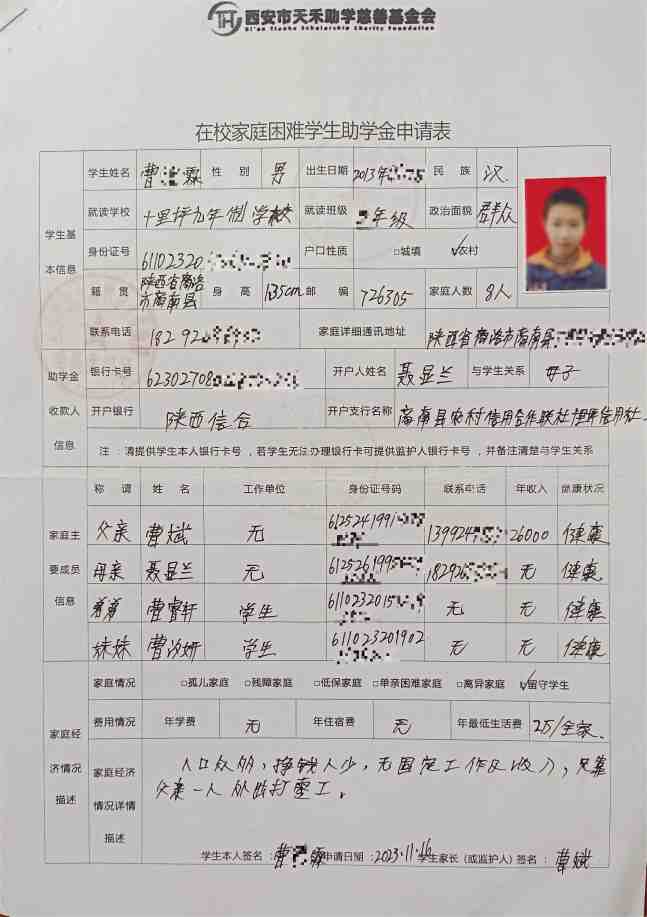 西安市天禾助学慈善基金会
Xi'an Tianhe Scholarship Charity Foundation
在校家庭困难学生助学金申请表
学生基本信息
学生姓名 曹 霖 性别 男 出生日期 2013年 民族 汉
就读学校 十里坪九年制学校 就读班级 年级 政治面貌 群众
身份证号 61102320 户口性质 □城填 ☑农村
籍贯 陕西省商洛市商南县 身高 135cm 邮编 726305 家庭人数 8人
联系电话 18292 家庭详细通讯地址 陕西省商洛市商南县
助学金收款人信息
银行卡号 62302708 开户人姓名 聂显兰 与学生关系 母子
开户银行 陕西信合 开户支行名称 商南县农村信用合作联社 信用社
注：请提供学生本人银行卡号，若学生无法办理银行卡可提供监护人银行卡号，并备注清楚与学生关系
家庭主要成员信息
称谓 姓名 工作单位 身份证号码 联系电话 年收入 健康状况
父亲 曹斌 无 612524199 139924 26000 健康
母亲 聂显兰 无 612526199 18292 无 健康
弟弟 曹睿轩 学生 611023201 无 无 健康
妹妹 曹汐妍 学生 611023201902 无 无 健康
家庭经济情况描述
家庭情况 □孤儿家庭 □残障家庭 □低保家庭 □单亲困难家庭 □离异家庭 ☑留守学生
费用情况 年学费 无 年住宿费 无 年最低生活费 2万/全家
家庭经济情况详情描述
人口众多，挣钱人少，无固定工作及收入，只靠
父亲一人外出打零工。
学生本人签名：曹 霖 申请日期：2023.11.16 学生家长（或监护人）签名：曹斌